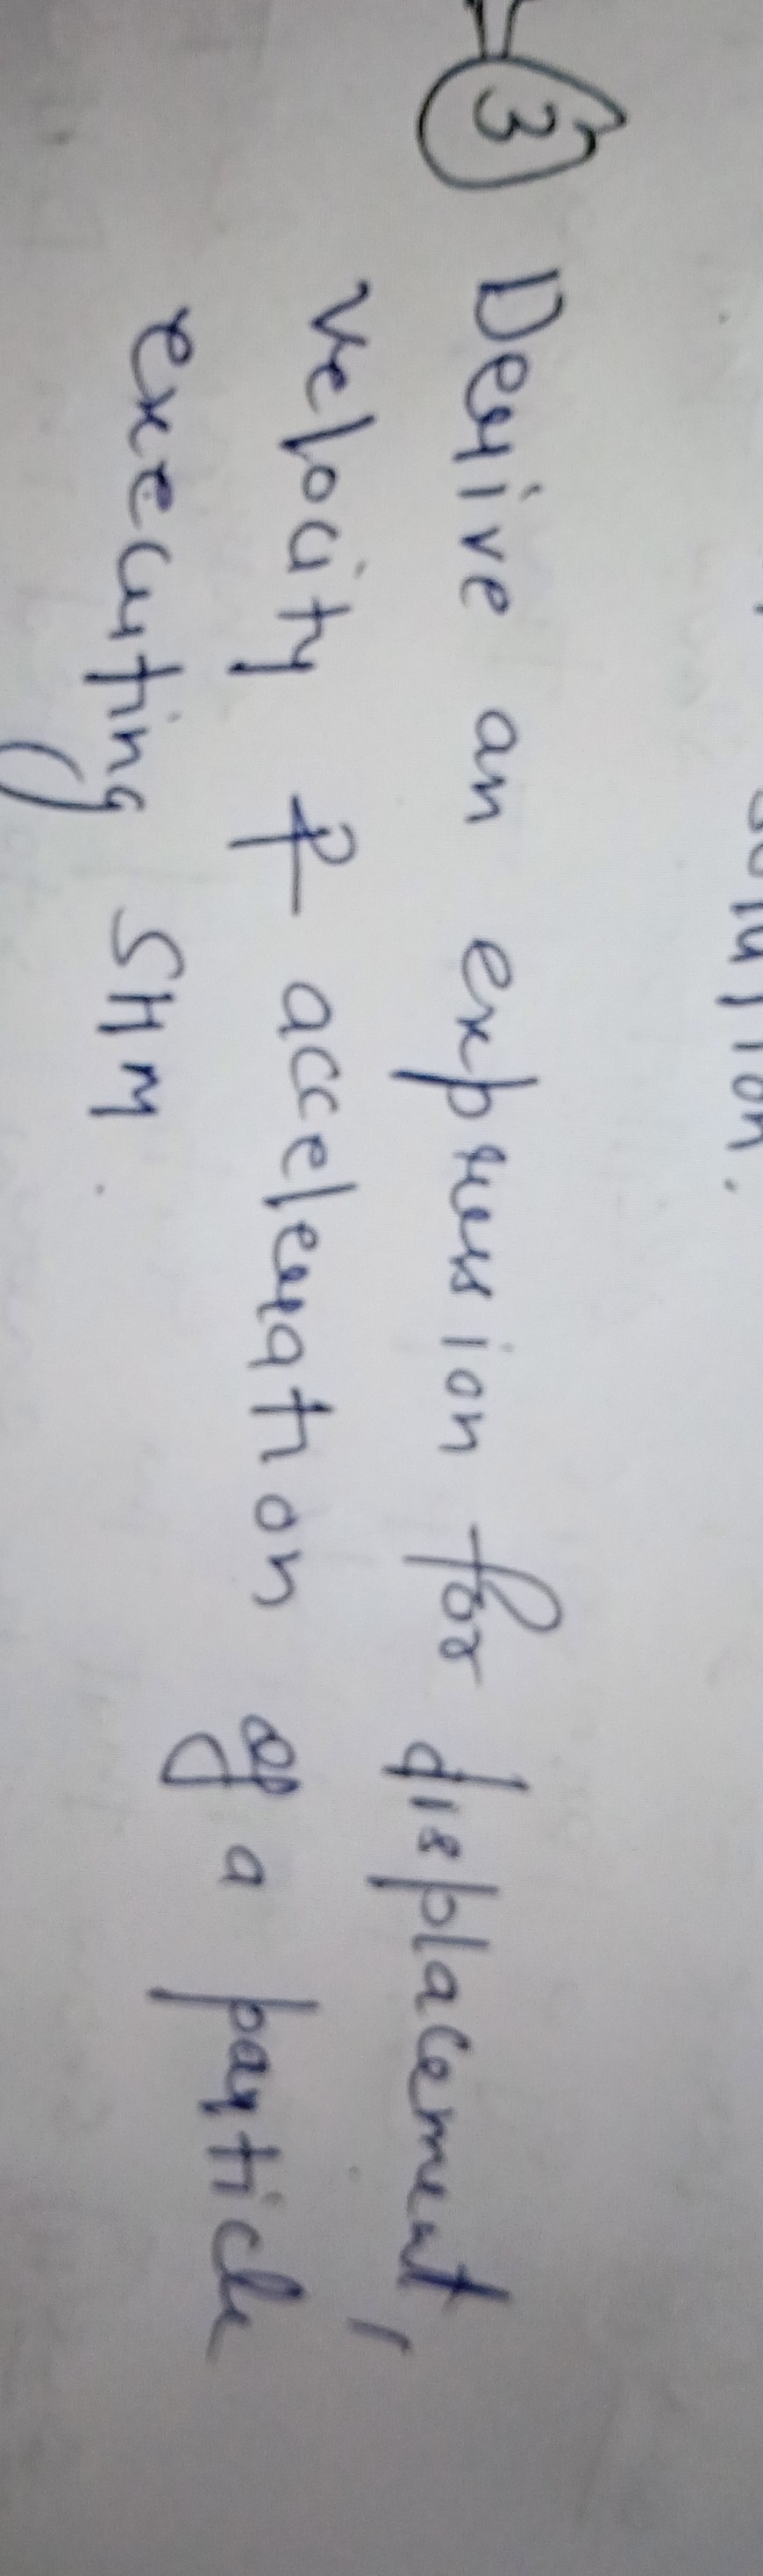 ③ Derive an expression for displacement,
velocity & acceleration of a particle
executing SHM.